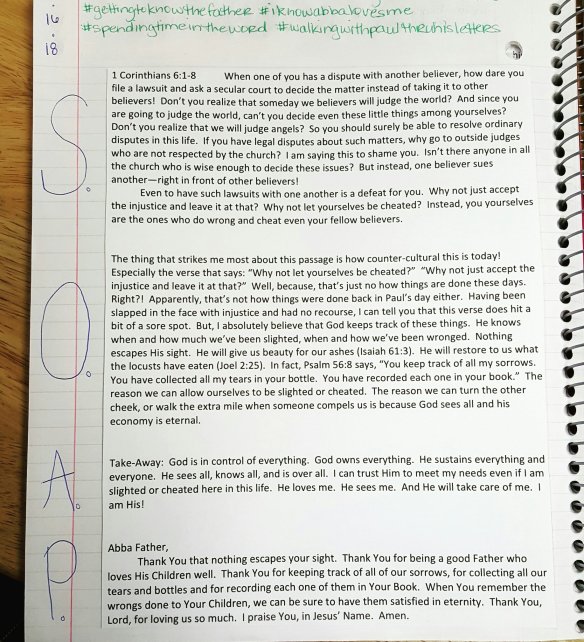 16
18
#gettingtoknowthefather #iknowabbalovesme
#spendingtimeintheword #walkingwithpaulthruhisletters
S.
1 Corinthians 6:1-8 When one of you has a dispute with another believer, how dare you
file a lawsuit and ask a secular court to decide the matter instead of taking it to other
believers! Don't you realize that someday we believers will judge the world? And since you
are going to judge the world, can't you decide even these little things among yourselves?
Don't you realize that we will judge angels? So you should surely be able to resolve ordinary
disputes in this life. If you have legal disputes about such matters, why go to outside judges
who are not respected by the church? I am saying this to shame you. Isn't there anyone in all
the church who is wise enough to decide these issues? But instead, one believer sues
another—right in front of other believers!
Even to have such lawsuits with one another is a defeat for you. Why not just accept
the injustice and leave it at that? Why not let yourselves be cheated? Instead, you yourselves
are the ones who do wrong and cheat even your fellow believers.
O.
The thing that strikes me most about this passage is how counter-cultural this is today!
Especially the verse that says: "Why not let yourselves be cheated?" "Why not just accept the
injustice and leave it at that?" Well, because, that's just no how things are done these days.
Right?! Apparently, that's not how things were done back in Paul's day either. Having been
slapped in the face with injustice and had no recourse, I can tell you that this verse does hit a
bit of a sore spot. But, I absolutely believe that God keeps track of these things. He knows
when and how much we've been slighted, when and how we've been wronged. Nothing
escapes His sight. He will give us beauty for our ashes (Isaiah 61:3). He will restore to us what
the locusts have eaten (Joel 2:25). In fact, Psalm 56:8 says, "You keep track of all my sorrows.
You have collected all my tears in your bottle. You have recorded each one in your book." The
reason we can allow ourselves to be slighted or cheated. The reason we can turn the other
cheek, or walk the extra mile when someone compels us is because God sees all and his
economy is eternal.
A.
Take-Away: God is in control of everything. God owns everything. He sustains everything and
everyone. He sees all, knows all, and is over all. I can trust Him to meet my needs even if I am
slighted or cheated here in this life. He loves me. He sees me. And He will take care of me. I
am His!
P.
Abba Father,
Thank You that nothing escapes your sight. Thank You for being a good Father who
loves His Children well. Thank You for keeping track of all of our sorrows, for collecting all our
tears and bottles and for recording each one of them in Your Book. When You remember the
wrongs done to Your Children, we can be sure to have them satisfied in eternity. Thank You,
Lord, for loving us so much. I praise You, in Jesus' Name. Amen.